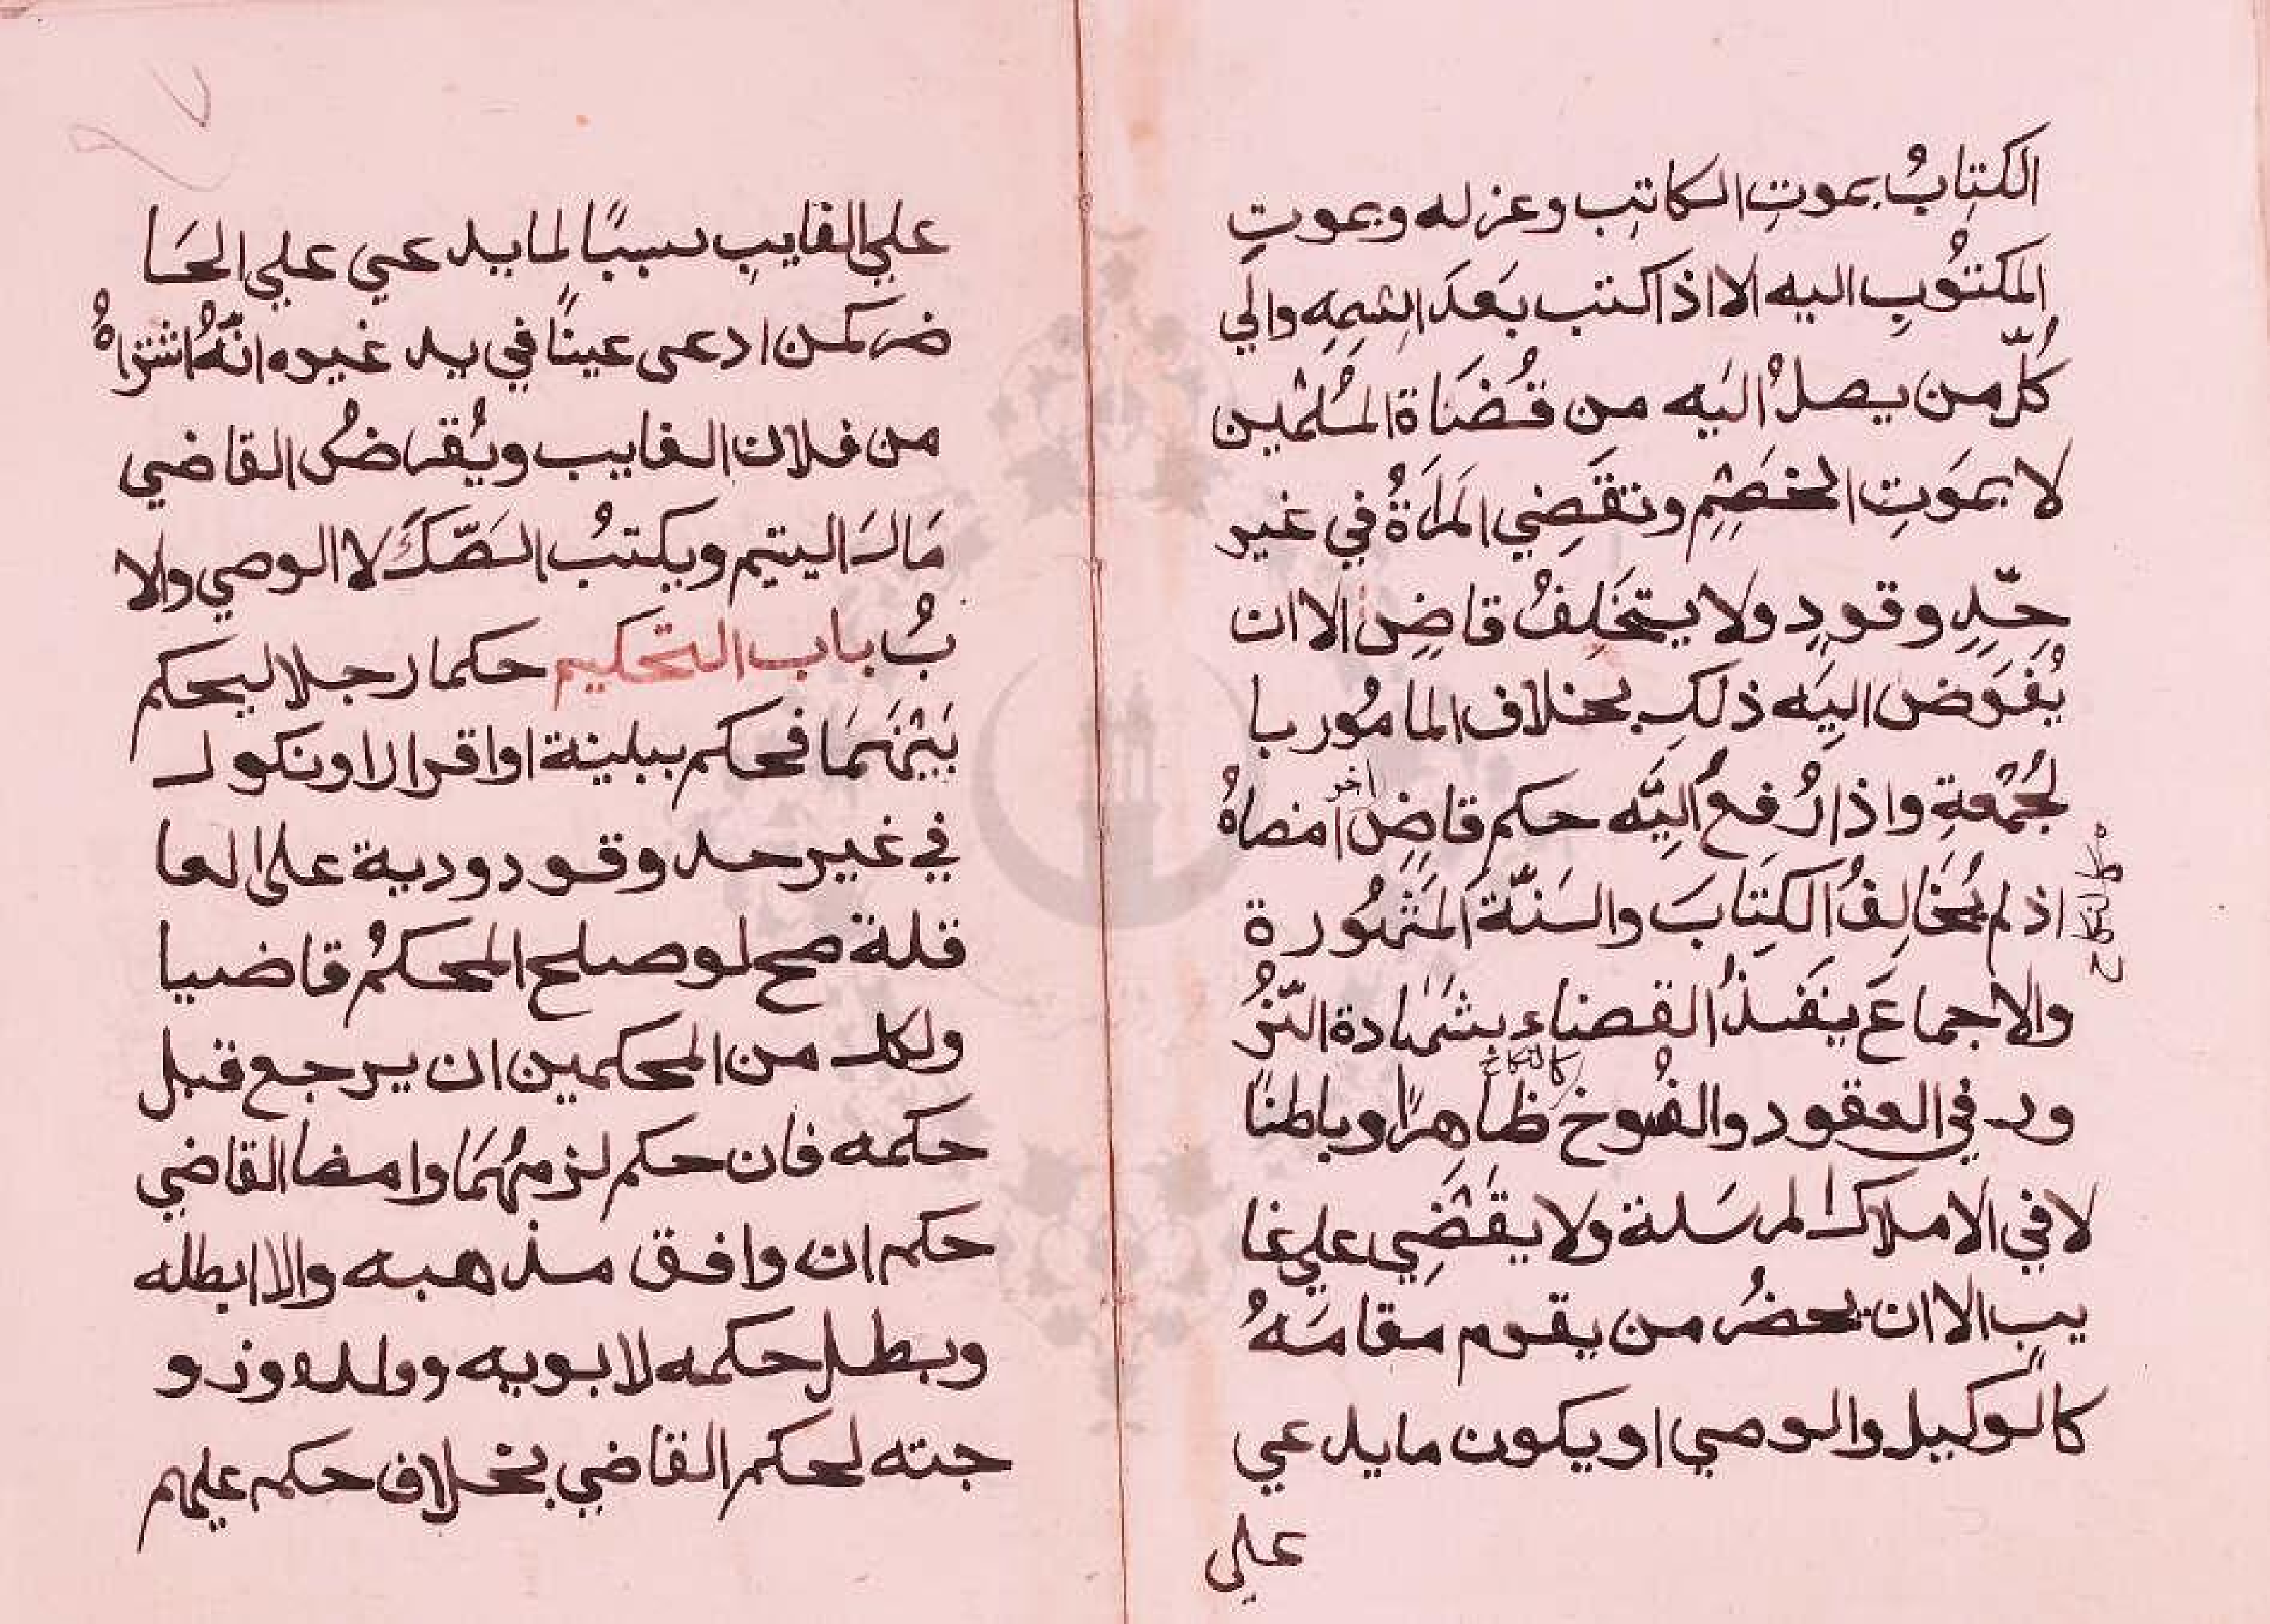 الكتِابُ بموتِ الكاتِب وعزله وبموتِ
المَكتوُبِ اليه الا اذا كتب بَعدَ اسِمِهِ والي
كُلّ من يصلُ اليَه من قُضَاة المُسُلمْين
لا بمَوتِ الخصْمِ وتقَضِي المَراةُ في غير
حَدِّ وقودٍ ولا يستخَلِفُ قاضِن الا ان
يُفَوَضَ اليَه ذلَكِ بخلاف المامُور با
لجُمْعةِ واذا رُفعُ اليَّه حكم قاضِن اخر امضاهُ
اذ لم يُخَالِفُ الكَتِابَ والسَنّةَ المَشْهُورة
كالنكاح
والاجماعَ ينَفَذُ القضاء بشهَادة الزّوُ
ور في العقود والفُسوخ كالنكاح ظاهرًا وباطنًا
لا في الاملاك المرسَلة ولا يقَضَي علي غا
يبٍ الا ان يحضُر من يقوم مقامَهُ
كالوكيل والوصي او يكون ما يدعي
علي
علي الغايبِ سببًا لما يدعي علي الحَا
ضر كمن ادعى عينًا في يد غيره انَّهُ اشتراهُ
من فلان الغايب ويُقراضُ القاضي
مَال اليتيم ويكتبُ الصَّكَ لا الوصي والا
بُ باب التحكيم حكما رجلا ليحكم
بَيْنَهمَا فحكم ببلينة او اقرار او نكول
في غير حد وقود ودية على العا
قلة صح لو صلح المحكمُ قاضيا
ولكل من المحكمين ان يرجع قبل
حكمه فان حكم لزمهُمَا وامضا القاضي
حكم ان وافق مذهبه والا ابطله
وبطل حكمه لابويه وولده وزو
جته لحكم القاضي بخلاف حكم عليهم